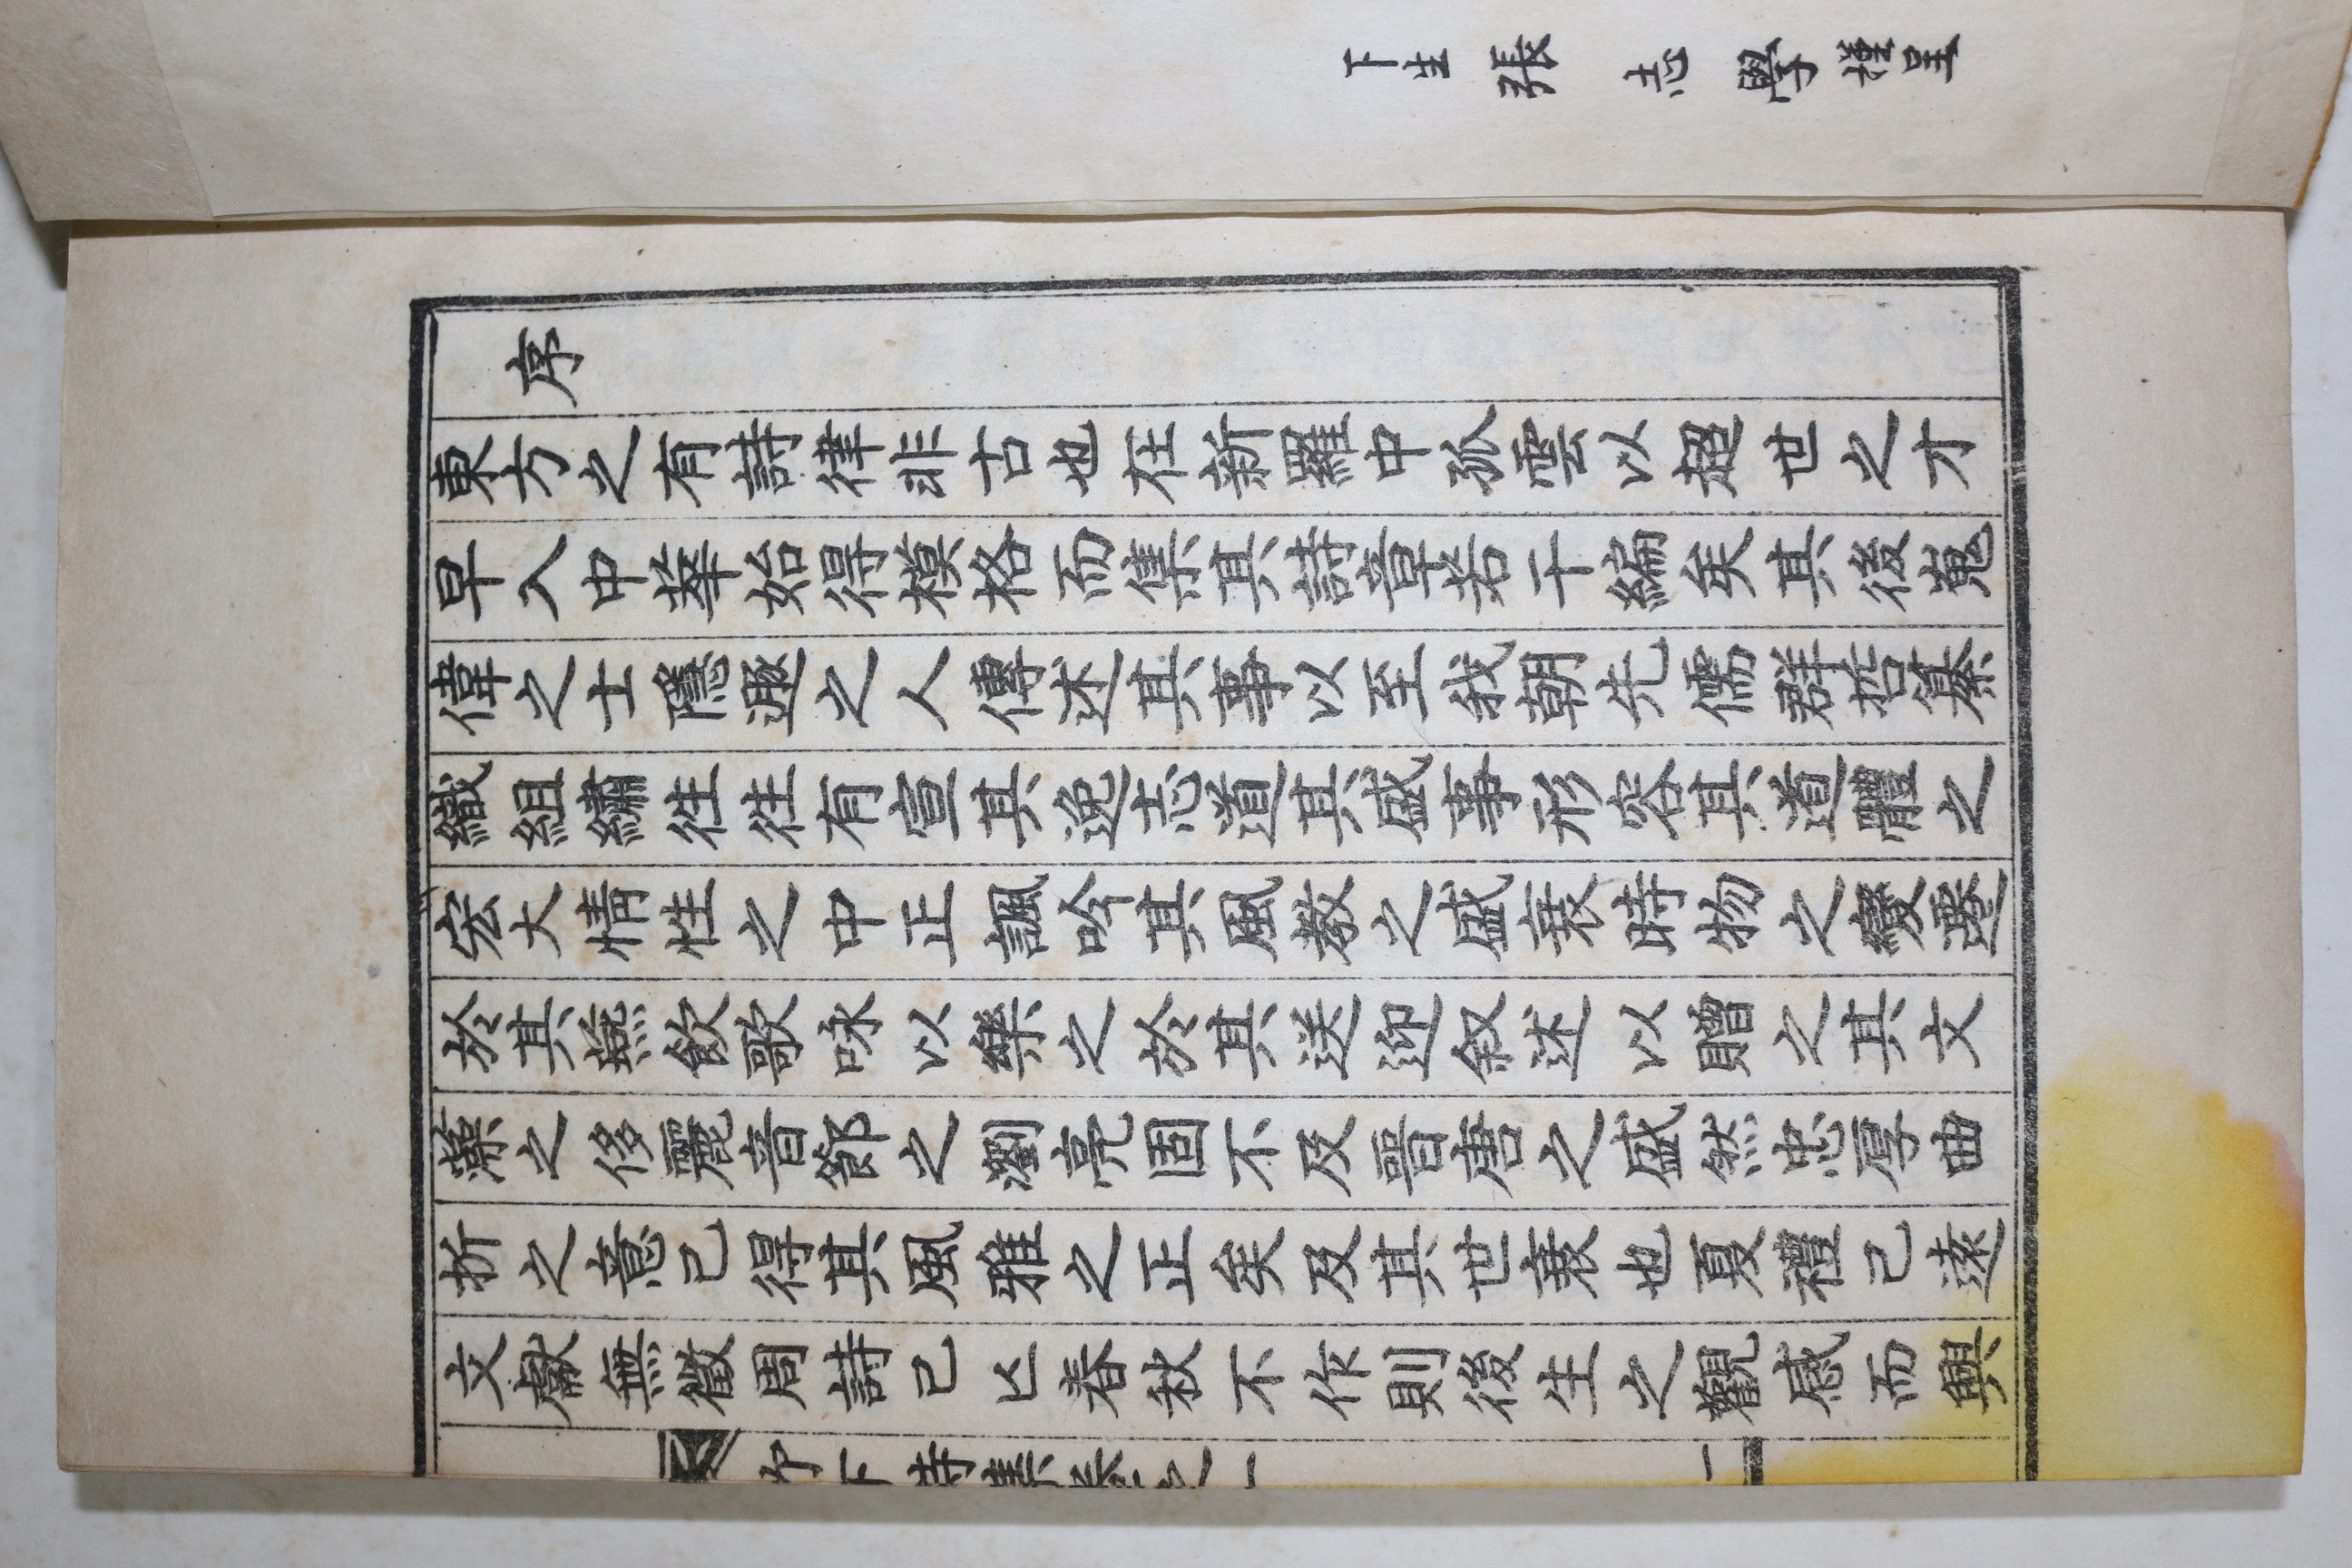 下生 張 志 學 謹呈
序
東方之有詩律非古也在新羅中孤雲以超世之才
早入中華始得模格而集其詩章若干編矣其後嵬
偉之士隱遯之人傳述其事以至我朝先儒群哲纂
織組繡徃徃有宣其逸志道其盛事形容其道體之
宏大情性之中正諷吟其風教之盛衰時物之變遷
於其燕飮歌咏以樂之於其送迎叙述以贈之其文
藻之侈麗音節之瀏亮固不及晉唐之盛然忠厚曲
折之意已得其風雅之正矣及其世衰也夏禮已遠
文獻無徵周詩已亾春秋不作則後生之觀感而興
竹下詩集卷之一
一